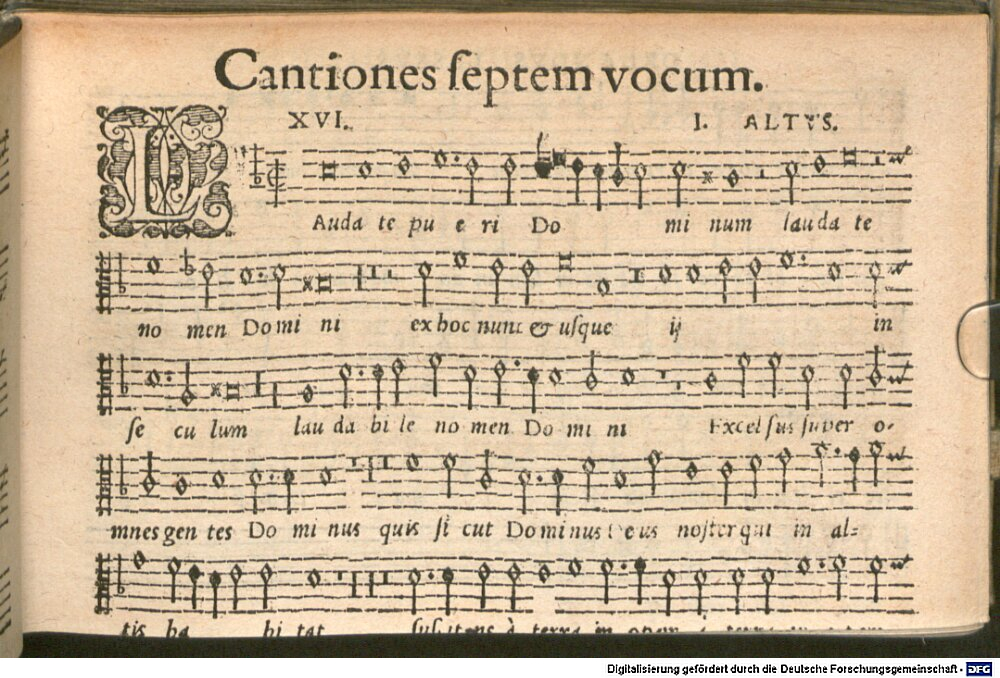 Cantiones ſeptem vocum.
XVI. I. ALTVS.
LAuda te pu e ri Do mi num lauda te
no men Domi ni ex hoc nunc & uſque ij in
ſe cu lum lau da bi le no men Do mi ni Excelſus ſuper o-
mnes gen tes Do mi nus quis ſi cut Dominus Deus noſter qui in al-
tis ha bi tat ſuſcitans à terra in
Digitalisierung gefördert durch die Deutsche Forschungsgemeinschaft - DFG